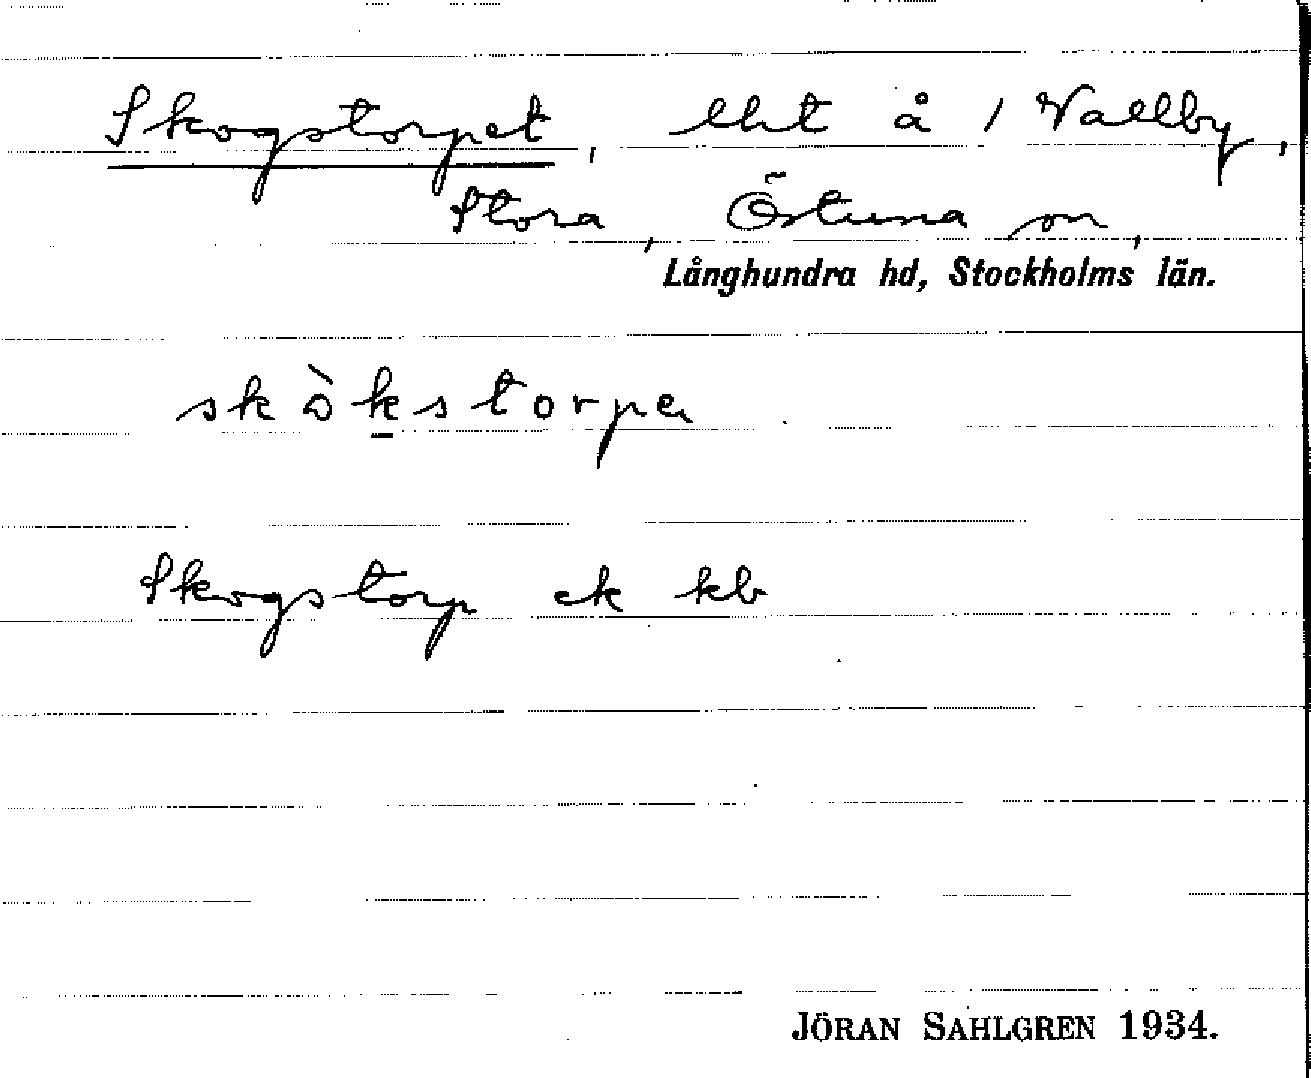 Skogstorpet, lht å 1 Vallby,
Stora, Östuna sn,
Långhundra hd, Stockholms län.
skòkstorpe
Skogstorp ek kb
JÖRAN SAHLGREN 1934.